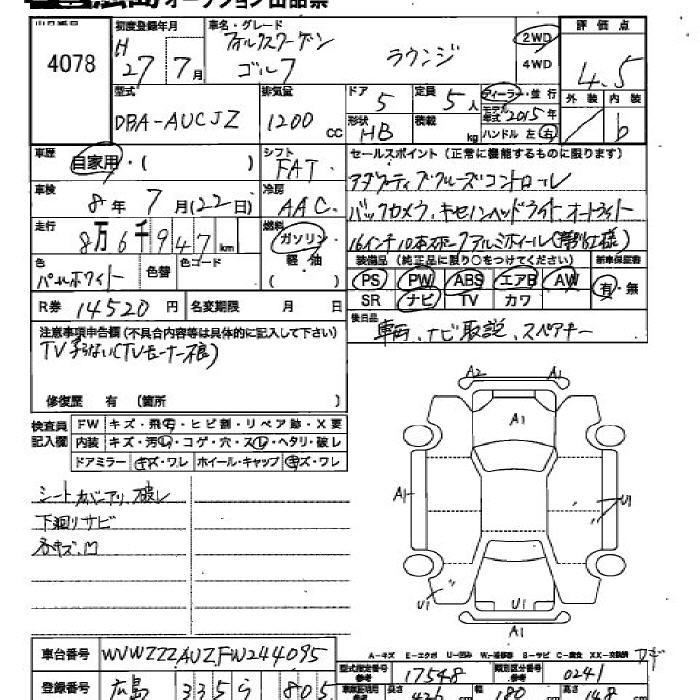 オークション出品票
4078
初度登録年月 車名・グレード 評価点
H 27 年 7月 フォルクスワーゲン ゴルフ ラウンジ 2WD 4WD 4.5
型式 排気量 ドア 定員 ディーラー・並行 外装 内装
DBA-AUCJZ 1200 CC 5 5人 モデル年式 2015年 b
形状 積載 ハンドル 左 右
HB kg
車歴 シフト セールスポイント (正常に機能するものに限ります)
自家用・( ) FAT アダプティブクルーズコントロール
車検 冷房
8年 7月 (22日) AAC バックカメラ、キセノンヘッドライト オートライト
走行 燃料
8万6千947km ガソリン 16インチ10本スポークアルミホイール(特別仕様)
色 色替 色コード 軽・油 装備品 (純正品に限り○をつけてください) 新車保証書
パールホワイト ( ) PS PW ABS エアB AW 有・無
R券 14520円 名変期限 月 日 SR ナビ TV カワ
注意事項申告欄(不具合内容等は具体的に記入して下さい) 後日品
TV 映らない(TVチューナー不良) 車両、ナビ取説、スペアキー
修復歴 有 (箇所 )
検査員記入欄 FW キズ・飛石・ヒビ割・リペア跡・X要
内装 キズ・汚レ・コゲ・穴・スレ・ヘタリ・破レ
ドアミラー キズ・ワレ ホイール・キャップ キズ・ワレ
シートカバーアリ、破レ
下廻りサビ
各キズ、凹
A2 A1
A1
A1 U1
U1 U1
A1
A-キズ E-エクボ U-凹み W-補修跡 S-サビ C-腐食 XX-交換済
車台番号 WVWZZZAUZFW244095
型式指定番号 参考 17548 類別区分番号 参考 0241
登録番号 広島 335 ら 805
長さ 426 cm 幅 180 cm 高さ 148 cm